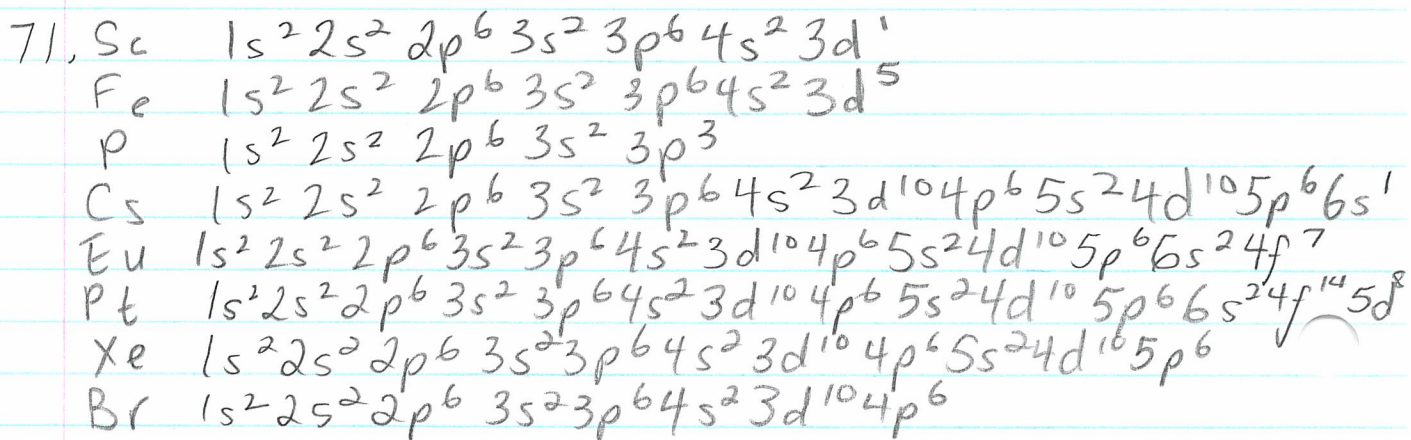 71. Sc 1s² 2s² 2p⁶ 3s² 3p⁶ 4s² 3d¹
Fe 1s² 2s² 2p⁶ 3s² 3p⁶ 4s² 3d⁵
P 1s² 2s² 2p⁶ 3s² 3p³
Cs 1s² 2s² 2p⁶ 3s² 3p⁶ 4s² 3d¹⁰ 4p⁶ 5s² 4d¹⁰ 5p⁶ 6s¹
Eu 1s² 2s² 2p⁶ 3s² 3p⁶ 4s² 3d¹⁰ 4p⁶ 5s² 4d¹⁰ 5p⁶ 6s² 4f⁷
Pt 1s² 2s² 2p⁶ 3s² 3p⁶ 4s² 3d¹⁰ 4p⁶ 5s² 4d¹⁰ 5p⁶ 6s² 4f¹⁴ 5d⁸
Xe 1s² 2s² 2p⁶ 3s² 3p⁶ 4s² 3d¹⁰ 4p⁶ 5s² 4d¹⁰ 5p⁶
Br 1s² 2s² 2p⁶ 3s² 3p⁶ 4s² 3d¹⁰ 4p⁶